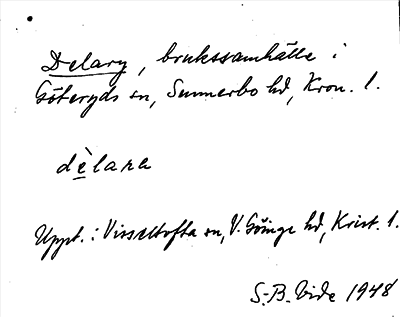 Delary, brukssamhälle i
Göteryds sn, Sunnerbo hd, Kron. l.
dèlara
Uppt.: Visseltofta sn, V. Göinge hd, Krist. l.
S.-B. Vide 1948